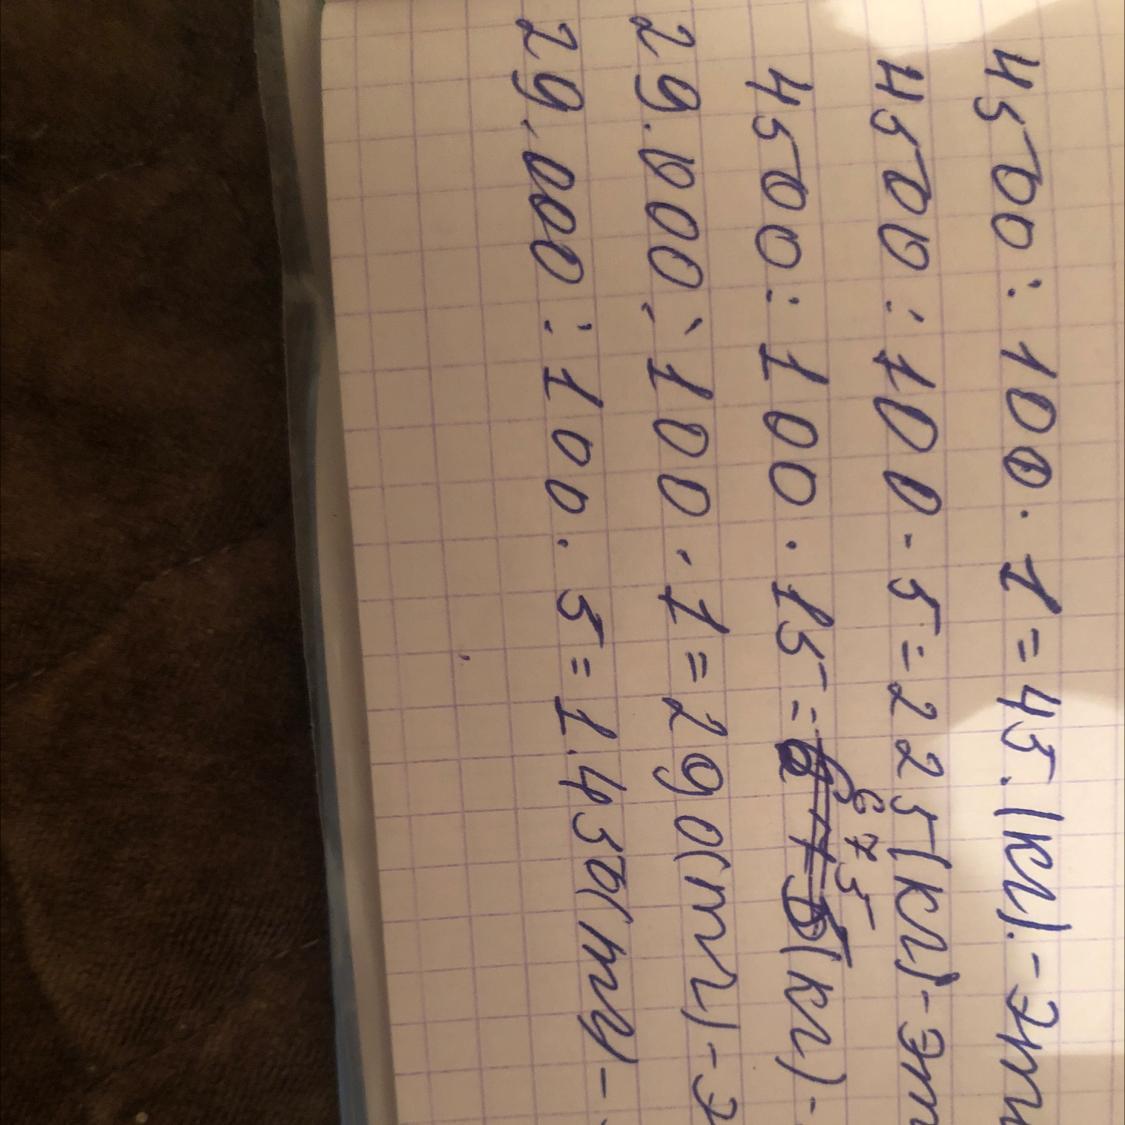 4500 : 100 . 1 = 45. (кг). - Эти
4500 : 100 - 5 = 225 (кг) - Эт
4500 : 100 . 15 = 675 (кг) -
29.000 : 100 . 1 = 290 (тг) - Э
29.000 : 100 . 5 = 1.450 (тг) -